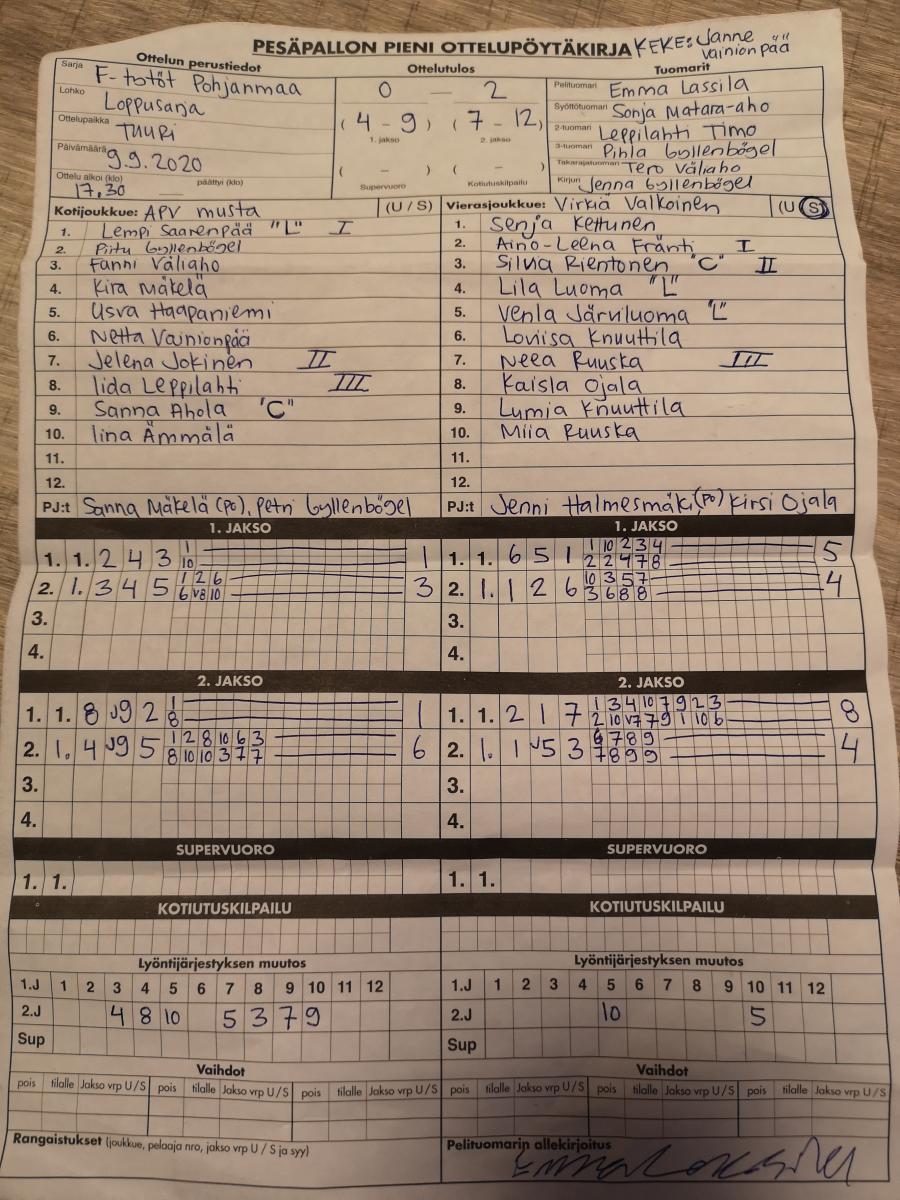 PESÄPALLON PIENI OTTELUPÖYTÄKIRJA KEKE: Janne Vainionpää
Ottelun perustiedot
Sarja F-tytöt Pohjanmaa
Lohko Loppusarja
Ottelupaikka TUURI
Päivämäärä 9.9.2020
Ottelu alkoi (klo) 17.30 päättyi (klo)
Ottelutulos
0 — 2
( 4 - 9 ) ( 7 - 12 )
1. jakso 2. jakso
( - ) ( - )
Supervuoro Kotiutuskilpailu
Tuomarit
Pelituomari Emma Lassila
Syöttötuomari Sonja Matara-aho
2-tuomari Leppilahti Timo
3-tuomari Pihla Gyllenbögel
Takarajatuomari Tero Väliaho
Kirjuri Jenna Gyllenbögel
Kotijoukkue: APV musta (U / S)
1. Lempi Saarenpää "L" I
2. Piitu Gyllenbögel
3. Fanni Väliaho
4. Kira Mäkelä
5. Usva Haapaniemi
6. Netta Vainionpää
7. Jelena Jokinen II
8. Iida Leppilahti III
9. Sanna Ahola "C"
10. Iina Ämmälä
11.
12.
PJ:t Sanna Mäkelä (po), Petri Gyllenbögel
Vierasjoukkue: Virkiä Valkoinen (U S)
1. Senja Kettunen
2. Aino-Leena Fränti I
3. Silvia Rientonen "C" II
4. Lila Luoma "L"
5. Venla Järviluoma "L"
6. Loviisa Knuuttila
7. Neea Ruuska III
8. Kaisla Ojala
9. Lumia Knuuttila
10. Miia Ruuska
11.
12.
PJ:t Jenni Halmesmäki (po) Kirsi Ojala
1. JAKSO
1. 1. 2 4 3 1 1
10
2. 1. 3 4 5 1 2 6 3
6 v8 10
3.
4.
1. JAKSO
1. 1. 6 5 1 1 10 2 3 4 5
2 2 4 7 8
2. 1. 1 2 6 10 3 5 7 4
3 6 8 8
3.
4.
2. JAKSO
1. 1. 8 v9 2 1 1
8
2. 1. 4 v9 5 1 2 8 10 6 3 6
8 10 10 3 7 7
3.
4.
2. JAKSO
1. 1. 2 1 7 1 3 4 10 7 9 2 3 8
2 10 v7 7 9 1 10 6
2. 1. 1 v5 3 6 7 8 9 4
7 8 9 9
3.
4.
SUPERVUORO
1. 1.
SUPERVUORO
1. 1.
KOTIUTUSKILPAILU
KOTIUTUSKILPAILU
Lyöntijärjestyksen muutos
1.J 1 2 3 4 5 6 7 8 9 10 11 12
2.J 4 8 10 5 3 7 9
Sup
Lyöntijärjestyksen muutos
1.J 1 2 3 4 5 6 7 8 9 10 11 12
2.J 10 5
Sup
Vaihdot
pois tilalle Jakso vrp U / S pois tilalle Jakso vrp U / S pois tilalle Jakso vrp U / S
Vaihdot
pois tilalle Jakso vrp U / S pois tilalle Jakso vrp U / S pois tilalle Jakso vrp U / S
Rangaistukset (joukkue, pelaaja nro, jakso vrp U / S ja syy)
Pelituomarin allekirjoitus
Emma Lassila